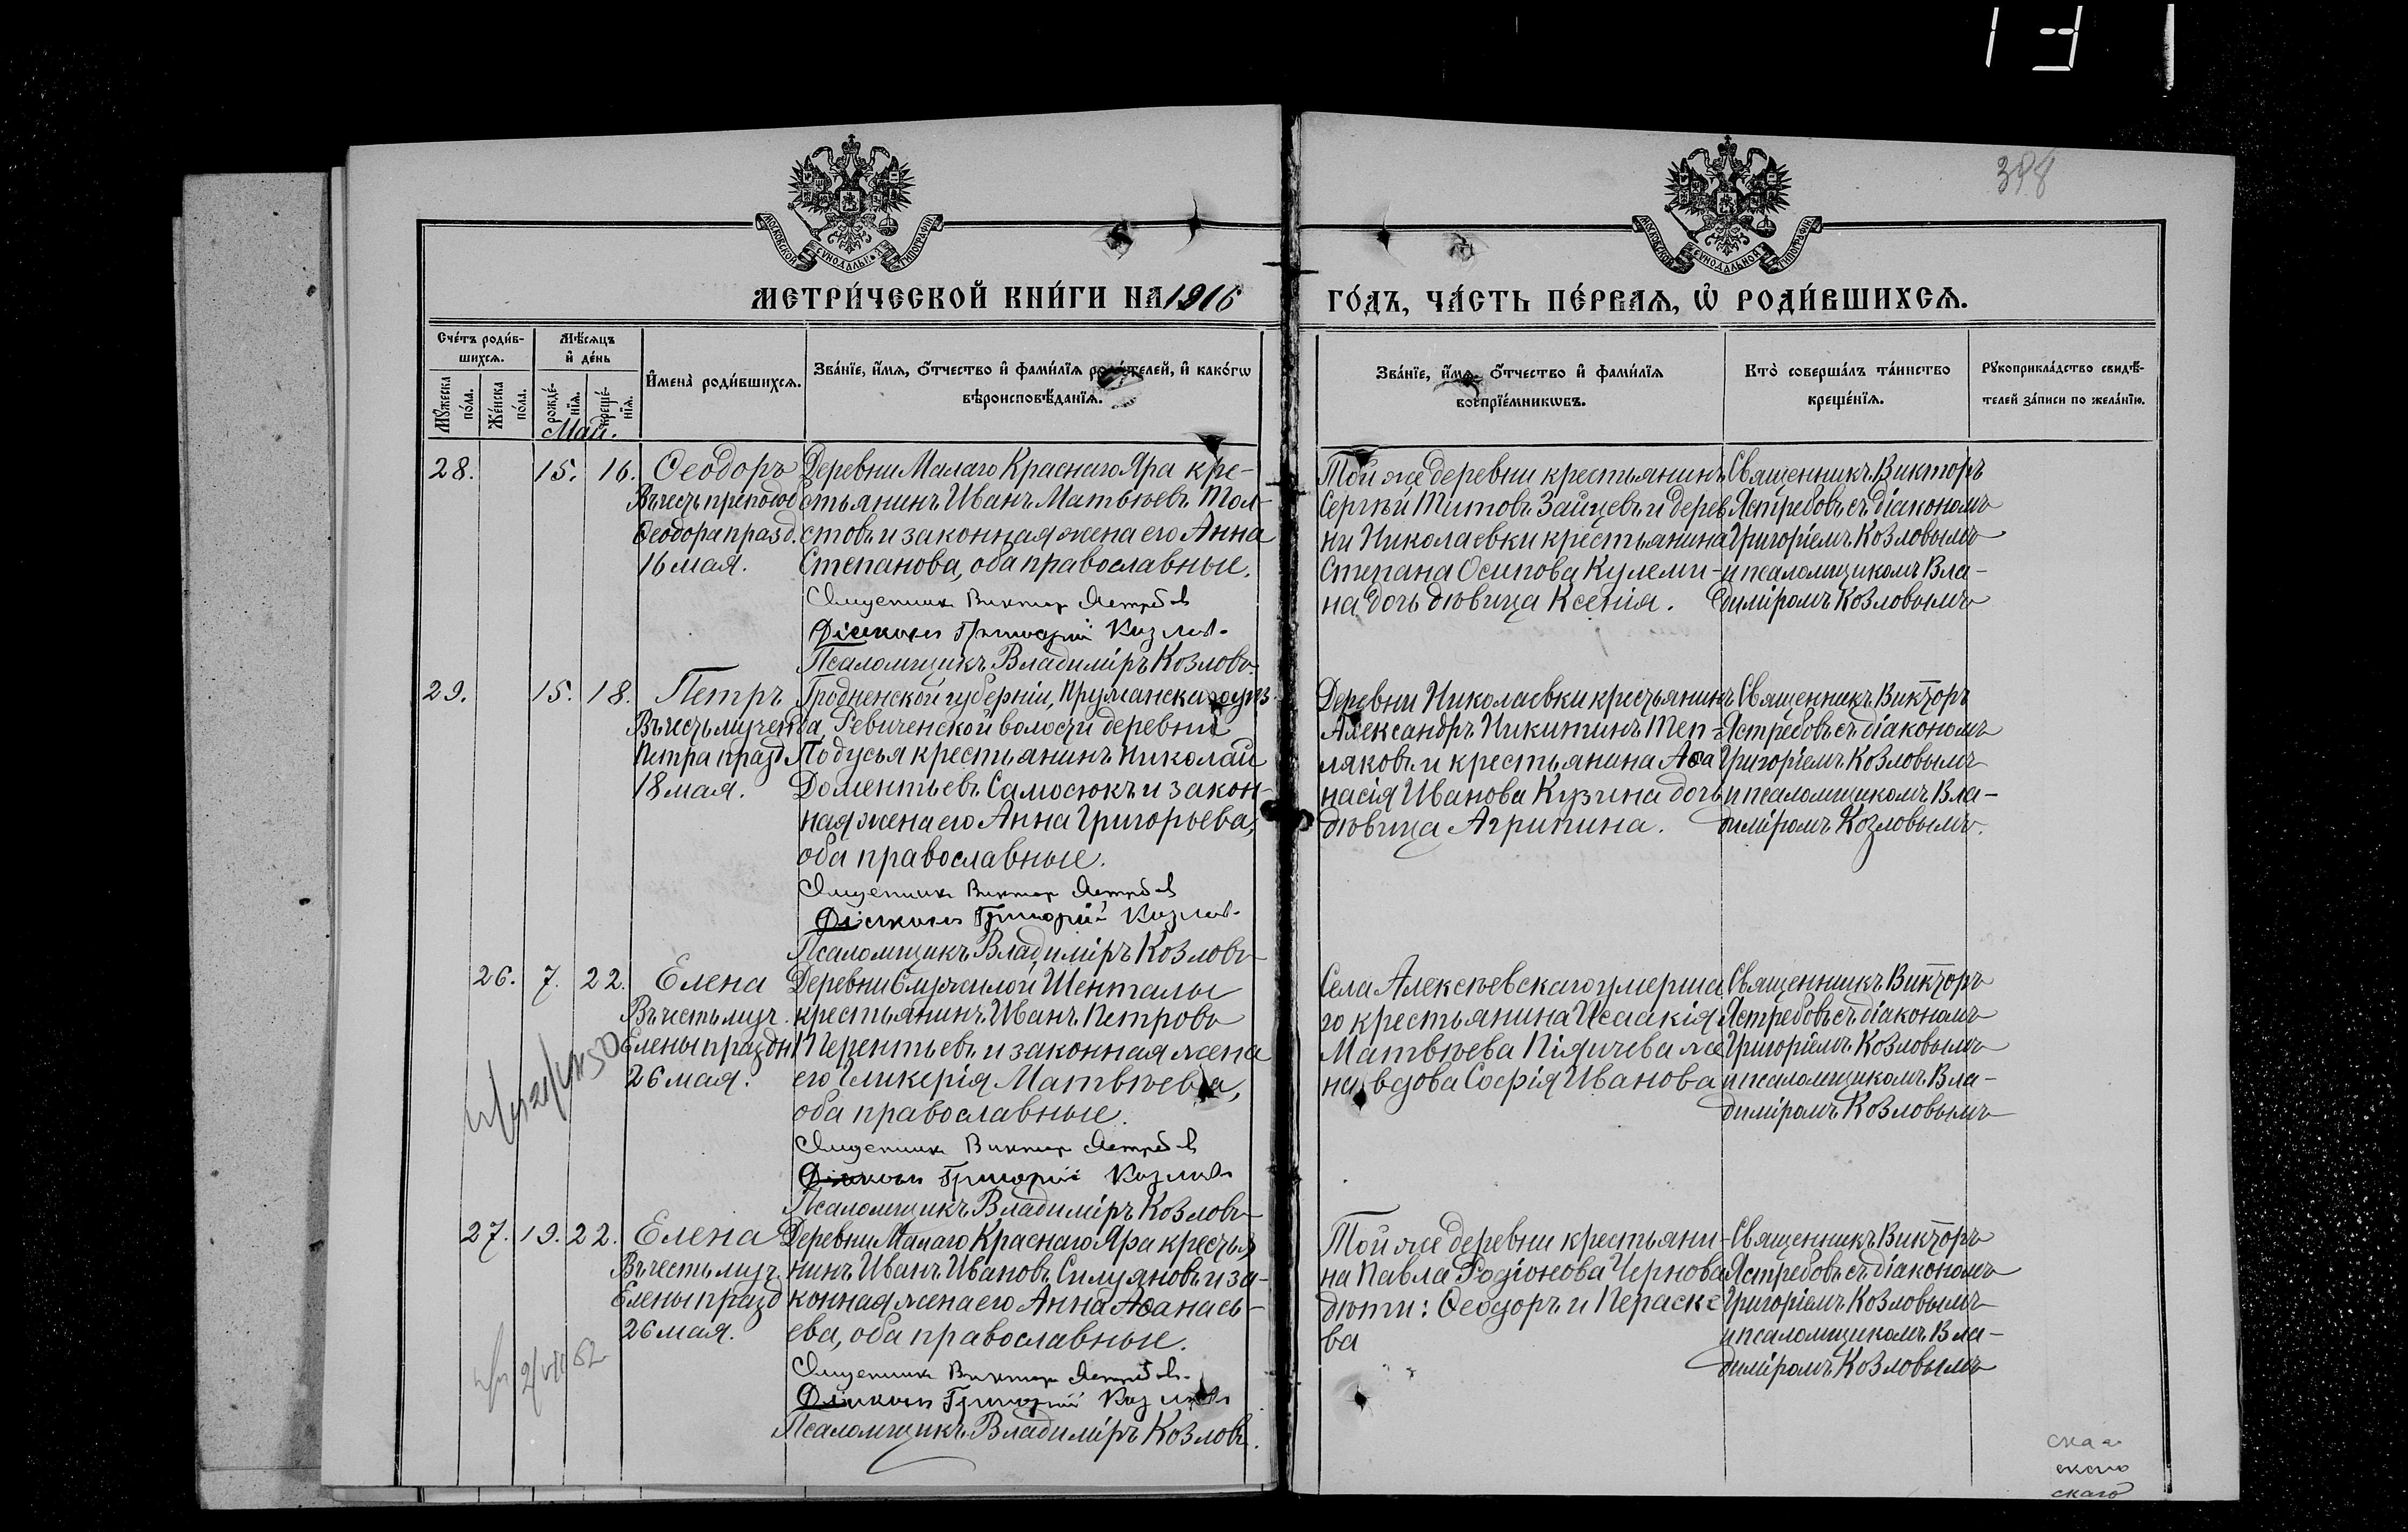 1 3 1
388
МОСКОВСКОЙ СѴНОДАЛЬНОЙ ТИПОГРАФІИ
МОСКОВСКОЙ СѴНОДАЛЬНОЙ ТИПОГРАФІИ
МЕТРИ́ЧЕСКОЙ КНИ́ГИ НА 1916
ГО́ДЪ, ЧА́СТЬ ПЕ́РВАѦ, Ѡ҆ РОДИ́ВШИХСѦ.
Сче́тъ роди́в-
шихсѧ.
Мѣ́сѧцъ
и҆ де́нь
Мꙋ́жеска по́ла.
Же́нска по́ла.
рожде́-
нїѧ.
креще́-
нїѧ.
И҆мена̀ роди́вшихсѧ.
Зва́нїе, и҆́мѧ, ѻ҆́тчество и҆ фами́лїѧ роди́телей, и҆ како́гѡ
вѣроисповѣ́данїѧ.
Зва́нїе, и҆́мѧ, ѻ҆́тчество и҆ фами́лїѧ
воспрїе́мникѡвъ.
Кто̀ соверша́лъ та́инство
креще́нїѧ.
Рꙋкоприкла́дство свидѣ́-
телей за́писи по жела́нїю.
Май.
28. 15. 16. Ѳеодоръ
Въ честь преподоб
Ѳеодора празд.
16 мая.
Деревни Малаго Краснаго Яра кре-
стьянинъ Иванъ Матвѣевъ Тол-
стовъ и законная жена его Анна
Степанова, оба православные.
Священникъ Викторъ Ястребовъ
Діаконъ Григорій Козловъ.
Псаломщикъ Владиміръ Козловъ.
Той же деревни крестьянинъ
Сергѣй Титовъ Зайцевъ и дерев
ни Николаевки крестьянина
Степана Осипова Кулеми-
на дочь дѣвица Ксенія.
Священникъ Викторъ
Ястребовъ съ діакономъ
Григоріемъ Козловымъ
и псаломщикомъ Вла-
диміромъ Козловымъ
29. 15. 18. Петръ
Въ честь мученика
Петра празд.
18 мая.
Гродненской губерніи, Пружанскаго уѣз-
да, Ревиченской волости деревни
Подусья крестьянинъ Николай
Доментьевъ Самосюкъ и закон-
ная жена его Анна Григорьева,
оба православные.
Священникъ Викторъ Ястребовъ
Діаконъ Григорій Козловъ.
Псаломщикъ Владиміръ Козловъ
Деревни Николаевки крестьянинъ
Александръ Никитинъ Теп-
ляковъ и крестьянина Аѳа
насія Иванова Кузина дочь
дѣвица Агрипина.
Священникъ Викторъ
Ястребовъ съ діакономъ
Григоріемъ Козловымъ
и псаломщикомъ Вла-
диміромъ Козловымъ.
26. 7. 22. Елена
Въ честь муч.
Елены праздн
26 мая.
Деревни Емучилой Шенталы
крестьянинъ Иванъ Петровъ
Терентьевъ и законная жена
его Гликерія Матвѣева,
оба православные.
Священникъ Викторъ Ястребовъ
Діаконъ Григорій Козловъ
Псаломщикъ Владиміръ Козловъ
Села Алексѣевскаго умерша
го крестьянина Исаакія
Матвѣева Пія́чева же
на вдова Софія Иванова
Священникъ Викторъ
Ястребовъ съ діакономъ
Григоріемъ Козловымъ
и псаломщикомъ Вла-
диміромъ Козловымъ
27. 19. 22. Елена
Въ честь муч.
Елены празд
26 мая.
Деревни Малаго Краснаго Яра крестья
нинъ Иванъ Ивановъ Силуяновъ и за-
конная жена его Анна Аѳанась-
ева, оба православные.
Священникъ Викторъ Ястребовъ.
Діаконъ Григорій Козловъ
Псаломщикъ Владиміръ Козловъ.
Той же деревни крестьяни-
на Павла Родіонова Чернова
дѣти: Ѳеодоръ и Параске
ва
Священникъ Викторъ
Ястребовъ съ діакономъ
Григоріемъ Козловымъ
и псаломщикомъ Вла-
диміромъ Козловымъ
скаго